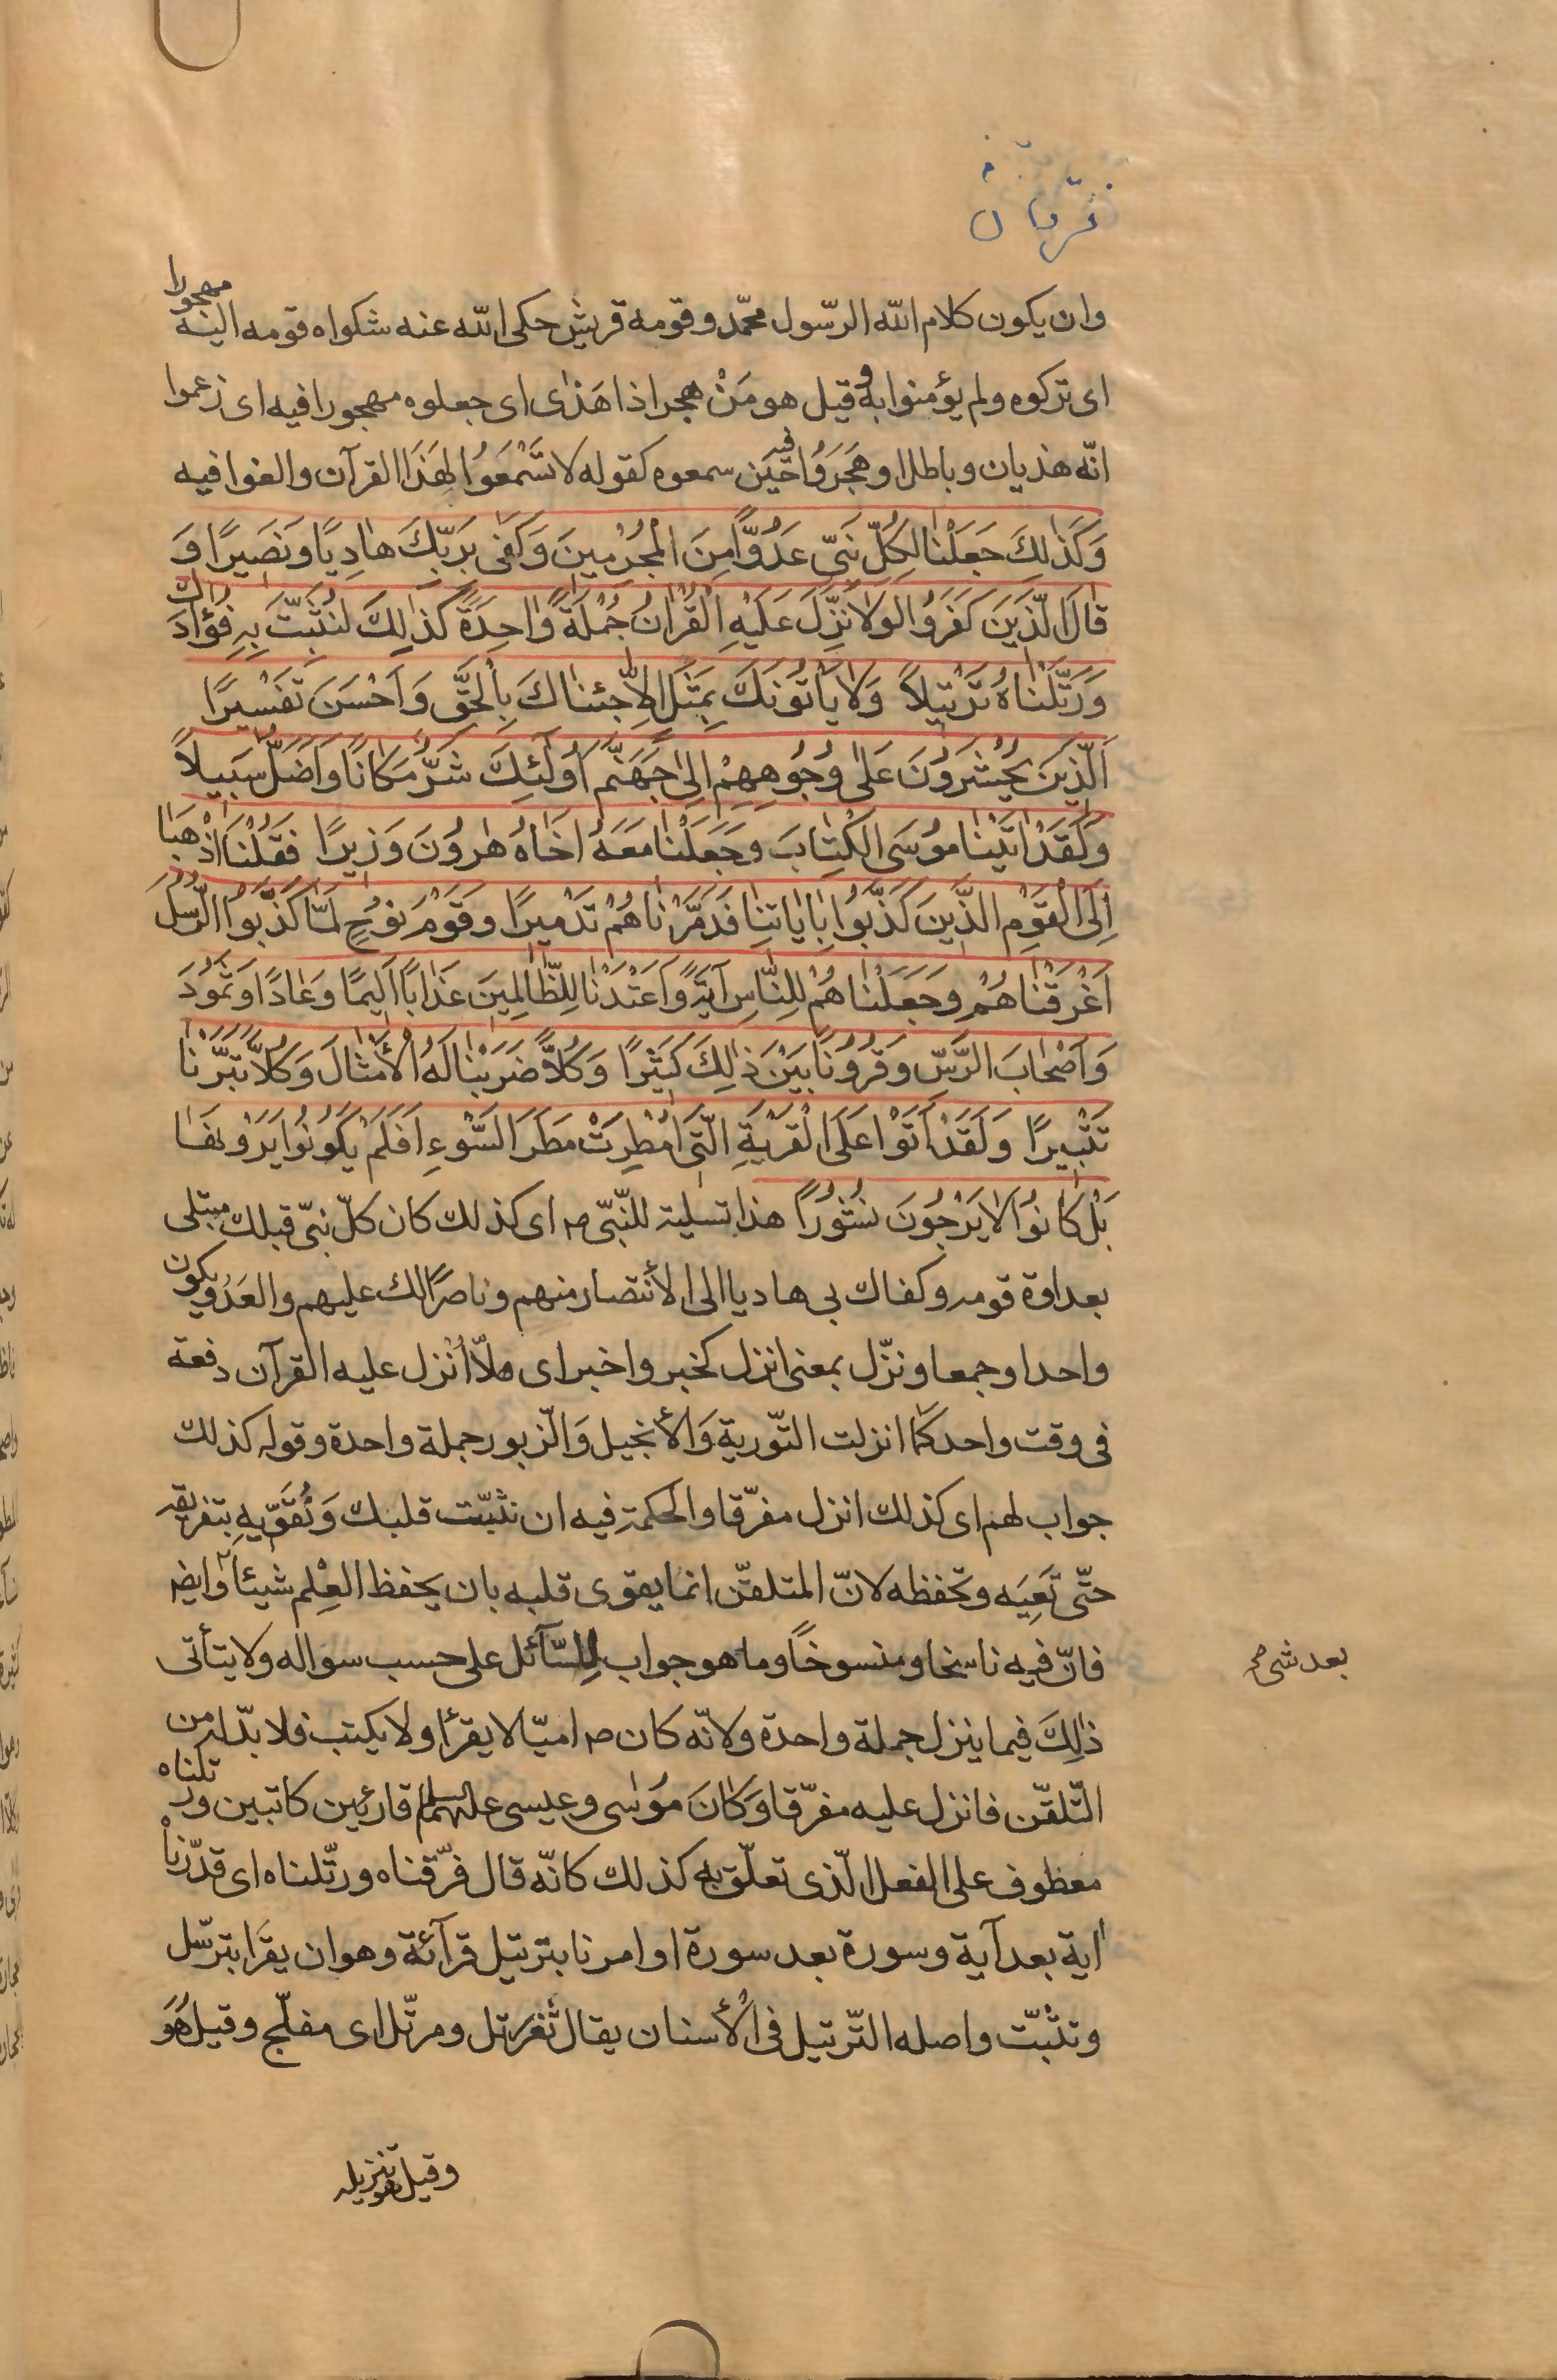 فرقان
وان يكون كلام الله الرّسول محمّد وقومه قريش حكى الله عنه شكواه قومه اليه مهجورا
اى تركوه ولم يؤمنوا به وقيل هو مَنْ هجر اذا هَذٰى اى جعلوه مهجورا فيه اى زعموا
انّه هذيان وباطل او هَجَرُوا فيه حين سمعوه كقوله لا تَسْمَعُوا لِهَذَا القرآن والغوا فيه
وَكَذٰلِكَ جَعَلْنٰا لِكُلِّ نَبِىّ عَدُوًّا مِنَ الْمُجْرِمينَ وَكَفٰى بِرَبِّكَ هٰادِيًا وَنَصيرًا وَ
قٰالَ الَّذينَ كَفَرُوا لَوْلٰا نُزِّلَ عَلَيْهِ الْقُرْاٰنُ جُمْلَةً وٰاحِدَةً كَذٰلِكَ لِنُثَبِّتَ بِهِ فُؤٰادَكَ
وَرَتَّلْنٰاهُ تَرْتيلاً وَلٰا يَأتُونَكَ بِمَثَلٍ اِلّٰا جِئْنٰاكَ بِالْحَقِّ وَاَحْسَنَ تَفْسيرًا
اَلَّذينَ يُحْشَرُونَ عَلٰى وُجُوهِهِمْ اِلٰى جَهَنَّمَ اُولٰئِكَ شَرٌّ مَكٰانًا وَاَضَلُّ سَبيلاً
وَلَقَدْ اٰتَيْنٰا مُوسَى الْكِتٰابَ وَجَعَلْنٰا مَعَهُ اَخٰاهُ هٰرُونَ وَزيرًا فَقُلْنَا اذْهَبٰا
اِلَى الْقَوْمِ الَّذينَ كَذَّبُوا بِاٰيٰاتِنٰا فَدَمَّرْنٰاهُمْ تَدْميرًا وَقَوْمَ نُوحٍ لَمّٰا كَذَّبُوا الرُّسُلَ
اَغْرَقْنٰاهُمْ وَجَعَلْنٰاهُمْ لِلنّٰاسِ آيَةً وَاَعْتَدْنٰا لِلظّٰالِمينَ عَذٰابًا اَليمًا وَعٰادًا وَثَمُودَ
وَاَصْحٰابَ الرَّسِّ وَقُرُونًا بَيْنَ ذٰلِكَ كَثيرًا وَكُلًّا ضَرَبْنٰا لَهُ الْأَمْثٰالَ وَكُلًّا تَبَّرْنٰا
تَتْبيرًا وَلَقَدْ اَتَوْا عَلَى الْقَرْيَةِ الَّتى اُمْطِرَتْ مَطَرَ السَّوْءِ اَفَلَمْ يَكُونُوا يَرَوْنَهٰا
بَلْ كٰانُوا لٰا يَرْجُونَ نُشُورًا هذا تسلية للنّبىّ ص اى كذلك كان كلّ نبىّ قبلك مبتلى
بعداوة قومه وكفاك بى هاديا الى الأنتصار منهم وناصرًا لك عليهم والعَدُوّ يكون
واحدا وجمعا ونزّل بمعنى انزل كخبر واخبر اى هلّا اُنْزل عليه القرآن دفعة
فى وقت واحد كما انزلت التّورية وَالأنجيل وَالزّبور جملة واحدة وقوله كذلك
جواب لهم اى كذلك انزل مفرّقا والحكمة فيه ان نثبّت قلبك وَنُقَوّيه بتفريقه
حتّى تَعِيَه وتحفظه لانّ المتلقّن انما يقوى قلبه بان يحفظ العِلْم شيئاً وايضا
بعد شىء
فانّ فيه ناسخا ومنسوخاً وما هو جواب للِسّآئل على حسب سواله ولا يتأتى
ذٰلِكَ فيما ينزل جملة واحدة ولانّه كان ص اميّا لا يقرأ ولا يكتب فلا بدّ له من
التّلقّن فانزل عليه مفرّقا وَكانَ مُوسٰى وعيسى عليهما السلم قارئين كاتبين ورتلناه
معطوف على الفعل الّذى تعلّق به كذلك كانّه قال فرّقناه ورتّلناه اى قدّرناه
اٰية بعد آية وسورة بعد سورة او امرنا بترتيل قرآئة وهو ان يقرَا بترسّل
وتثبّت واصله التّرتيل فى الأسنان يقال ثغر رتل ومرتّل اى مفلّج وقيل هُوَ
وقيل هو تنزيله